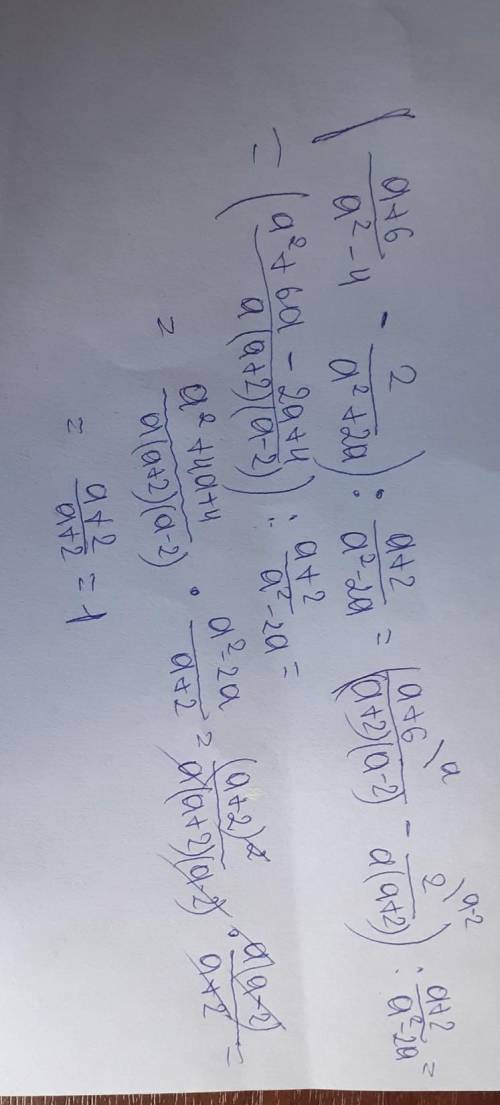 ( a+6 / a² - 4 - 2 / a² + 2a ) : a+2 / a² - 2a = ( a+6 \a / (a+2)(a-2) - 2 \a-2 / a(a+2) ) : a+2 / a² - 2a =
= ( a² + 6a - 2a + 4 / a(a+2)(a-2) ) : a+2 / a² - 2a =
= a² + 4a + 4 / a(a+2)(a-2) · a² - 2a / a+2 = (a+2)² / a(a+2)(a-2) · a(a-2) / a+2 =
= a+2 / a+2 = 1